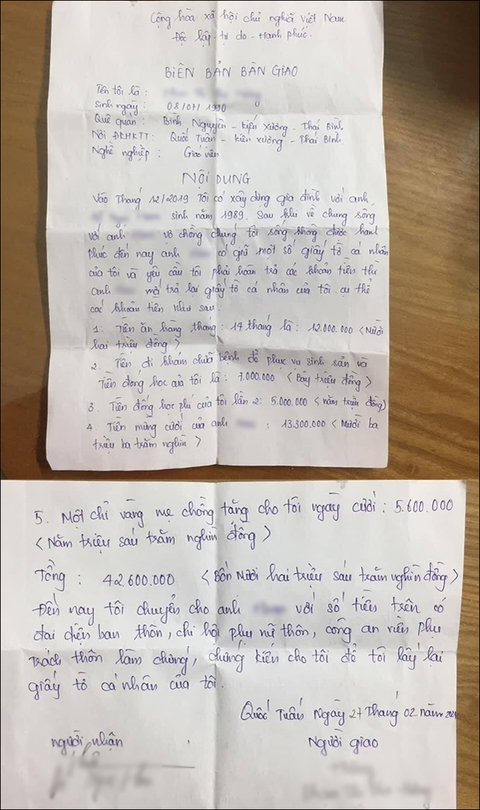 Cộng hòa xã hội chủ nghĩa Việt Nam
Độc lập - tự do - Hạnh phúc.
BIÊN BẢN BÀN GIAO
Tên tôi là :
Sinh ngày : 08/07/1990
Quê quán : Bình Nguyên - Kiến Xương - Thái Bình
Nơi ĐKHKTT : Quốc Tuấn - Kiến Xương - Thái Bình
Nghề nghiệp : Giáo viên
NỘI DUNG
Vào tháng 12/2019 Tôi có xây dựng gia đình với anh
sinh năm 1989. Sau khi về chung sống
với anh vợ chồng chúng tôi sống không được hạnh
phúc đến nay anh có giữ một số giấy tờ cá nhân
của tôi và yêu cầu tôi phải hoàn trả các khoản tiền thì
anh mới trả lại giấy tờ cá nhân của tôi cụ thể
các khoản tiền như sau:
1. Tiền ăn hàng tháng : 14 tháng là : 12.000.000 <Mười
hai triệu đồng>
2. Tiền đi khám chữa bệnh để phục vụ sinh sản và
Tiền đóng học của tôi là : 7.000.000 <Bảy triệu đồng>
3. Tiền đóng học phí của tôi lần 2: 5.000.000 <năm triệu đồng>
4 Tiền mừng cưới của anh : 13.300.000 <Mười ba
triệu ba trăm nghìn>
5. Một chỉ vàng mẹ chồng tặng cho tôi ngày cưới : 5.600.000
<Năm triệu sáu trăm nghìn đồng>
Tổng : 42600.000 <Bốn mươi hai triệu sáu trăm nghìn đồng>
Đến nay tôi chuyển cho anh với số tiền trên có
đại diện ban thôn, chi hội phụ nữ thôn, công an viên phụ
trách thôn làm chứng, chứng kiến cho tôi để tôi lấy lại
giấy tờ cá nhân của tôi.
Quốc Tuấn Ngày 27 Tháng 02 năm
người nhận
Người giao